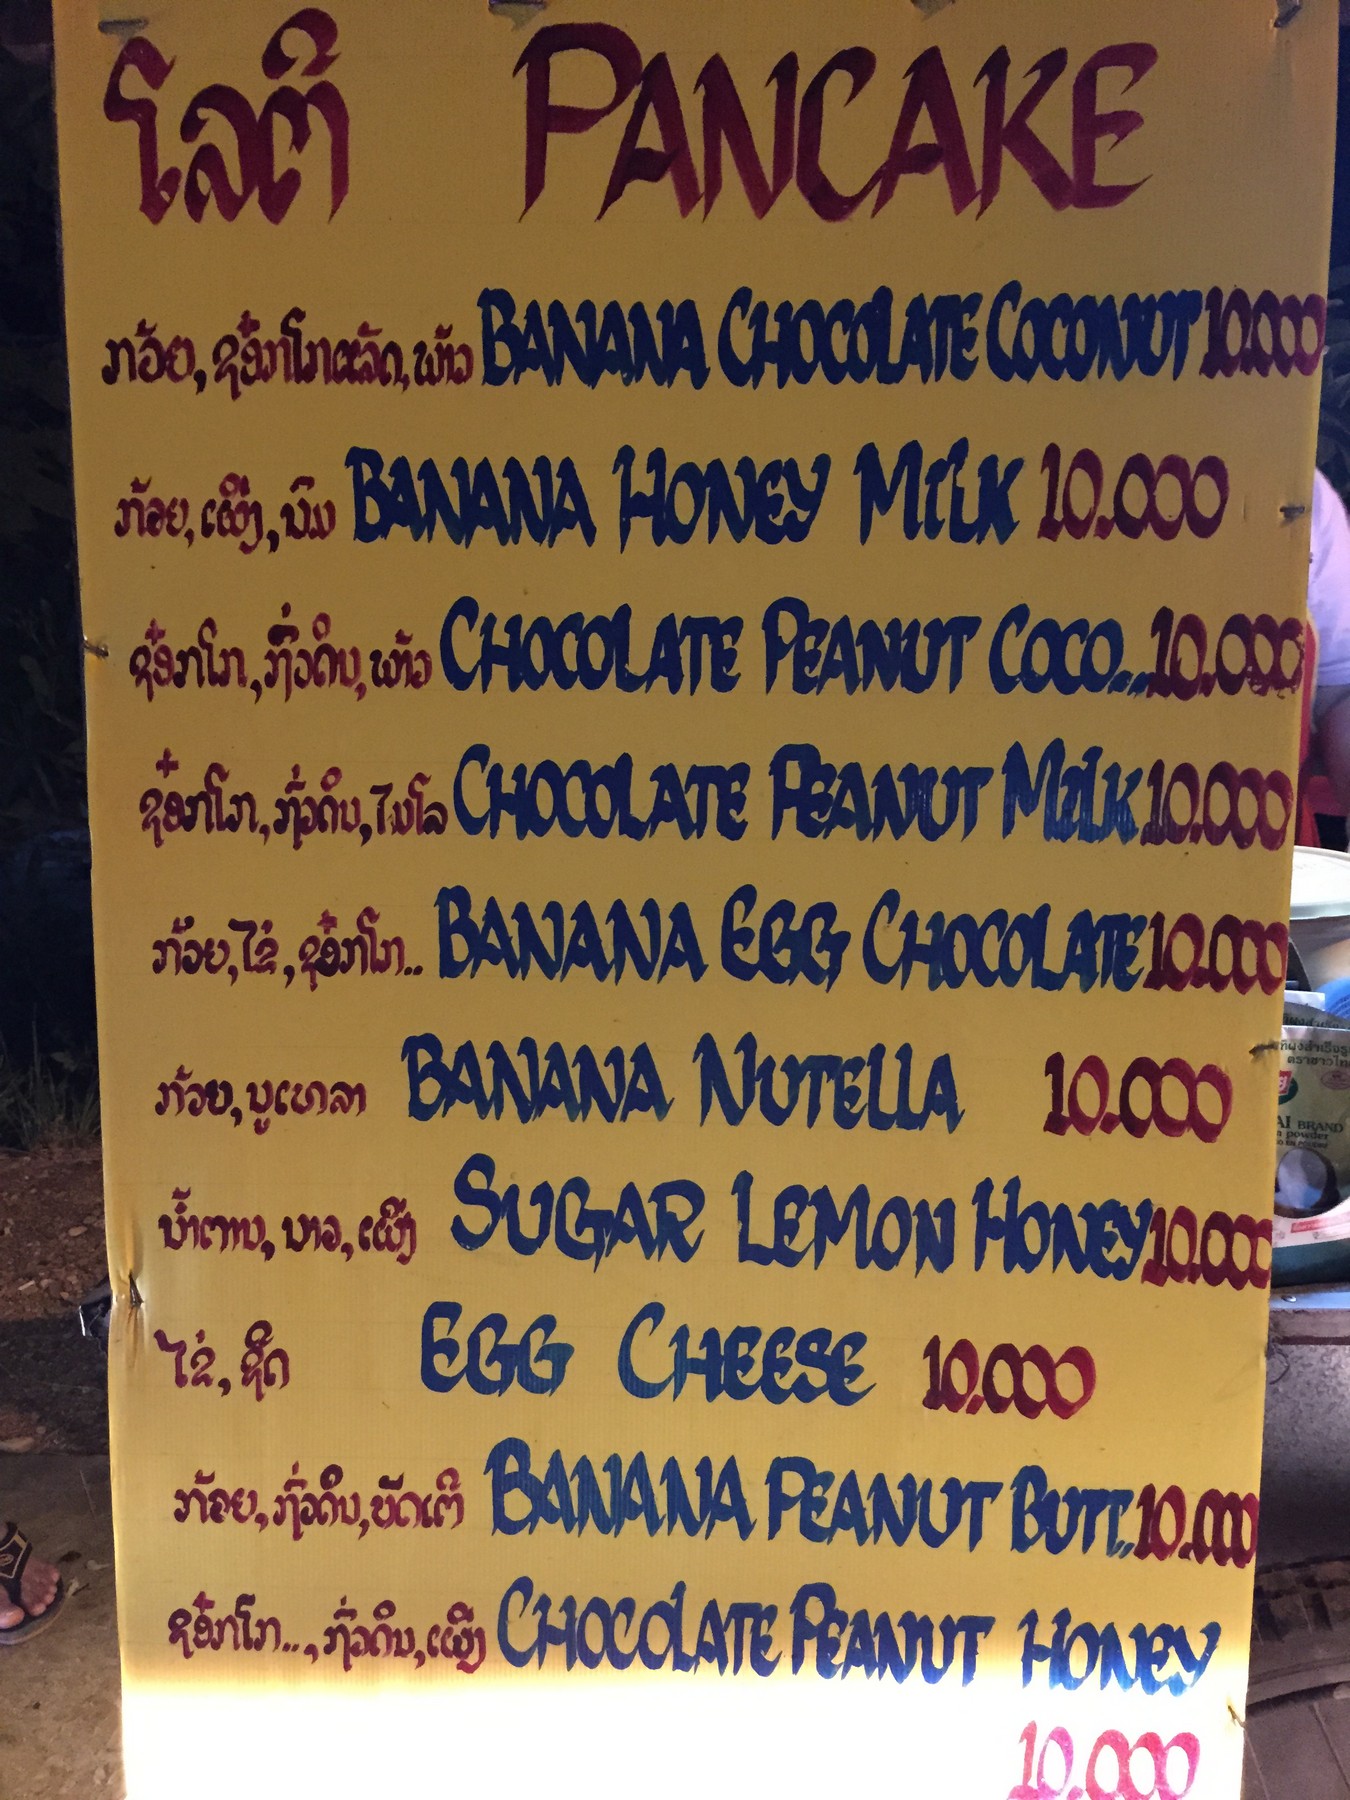 ໂລຕີ PANCAKE
ກ້ວຍ, ຊ໋ອກໂກແລັດ, ພ້າວ BANANA CHOCOLATE COCONUT 10.000
ກ້ວຍ, ເຜີ້ງ, ນົມ BANANA HONEY MILK 10.000
ຊ໋ອກໂກ, ຖົ່ວດິນ, ພ້າວ CHOCOLATE PEANUT COCO... 10.000
ຊ໋ອກໂກ, ຖົ່ວດິນ, ໄມໂລ CHOCOLATE PEANUT MILK 10.000
ກ້ວຍ, ໄຂ່, ຊ໋ອກໂກ.. BANANA EGG CHOCOLATE 10.000
ກ້ວຍ, ນູເທລາ BANANA NUTELLA 10.000
ນ້ຳຕານ, ນາວ, ເຜີ້ງ SUGAR LEMON HONEY 10.000
ໄຂ່, ຊີດ EGG CHEESE 10.000
ກ້ວຍ, ຖົ່ວດິນ, ບັດເຕີ BANANA PEANUT BUTT.. 10.000
ຊ໋ອກໂກ.., ຖົ່ວດິນ, ເຜີ້ງ CHOCOLATE PEANUT HONEY
10.000
BRAND
powder